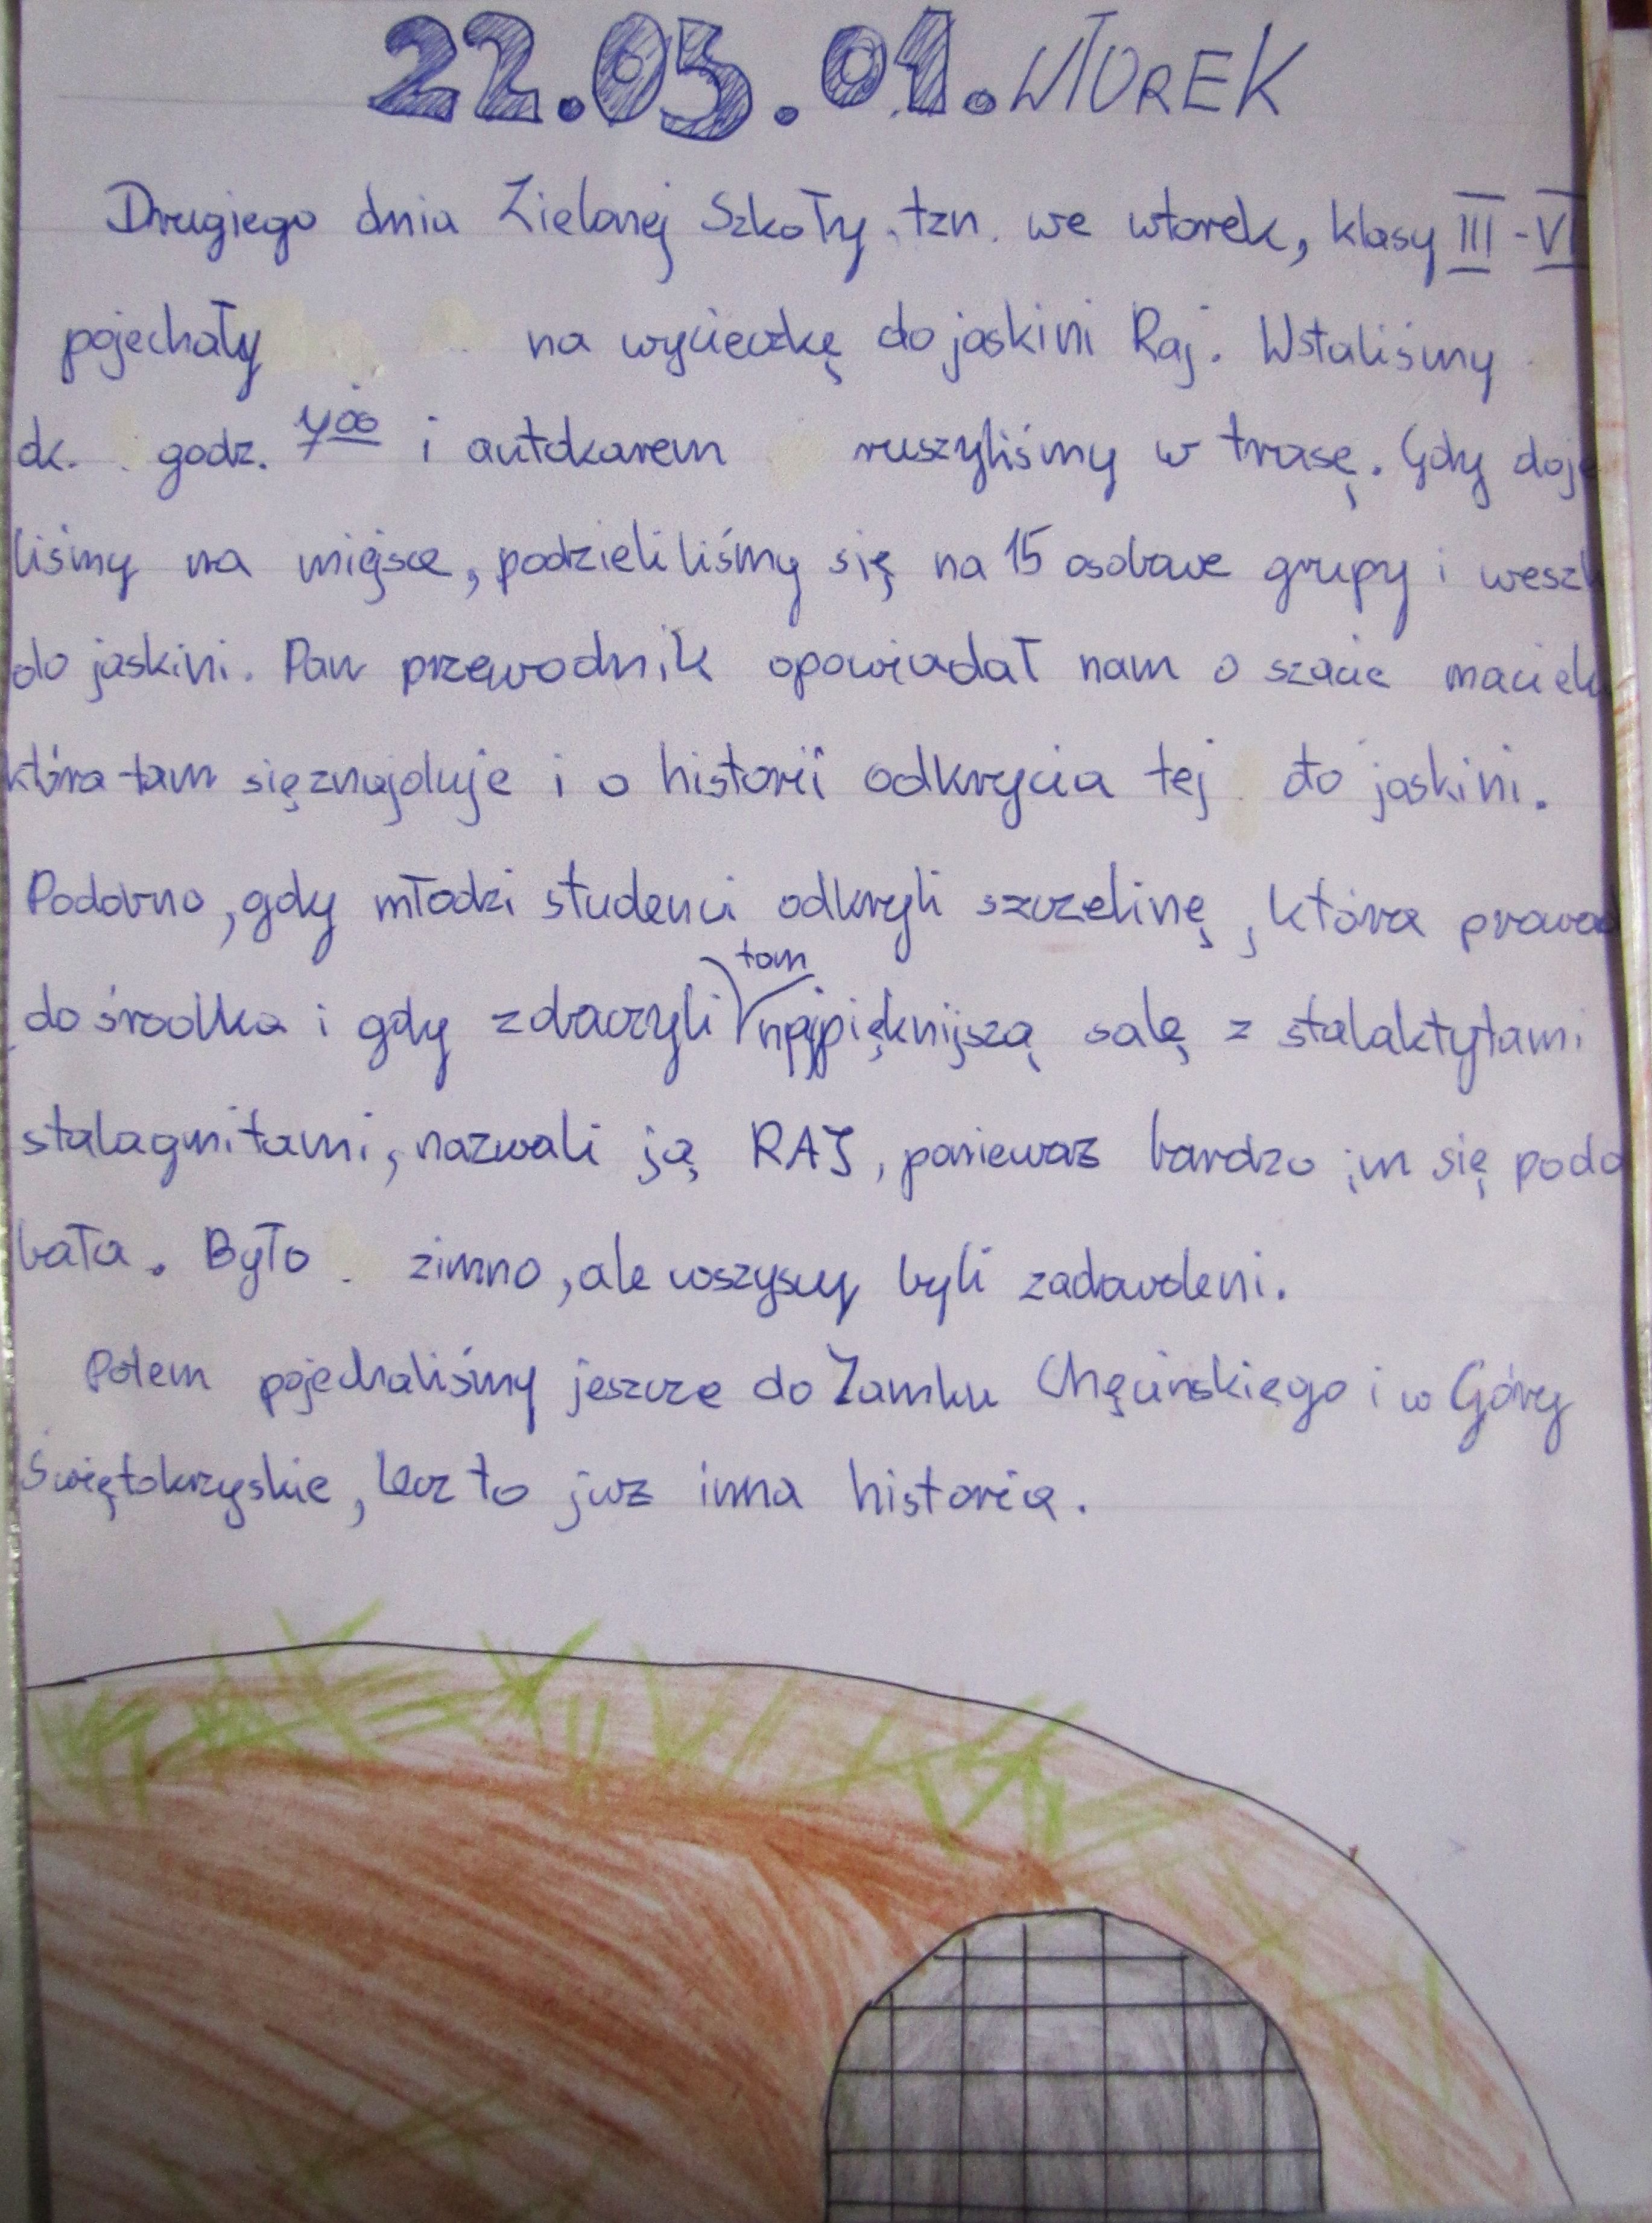 22.05.01. WTOREK
Drugiego dnia Zielonej Szkoły, tzn. we wtorek, klasy III-VI
pojechały na wycieczkę do jaskini Raj. Wstaliśmy
ok. godz. 7⁰⁰ i autokarem ruszyliśmy w trasę. Gdy doje
liśmy na miejsce, podzieliliśmy się na 15 osobowe grupy i weszl
do jaskini. Pan przewodnik opowiadał nam o szacie naciek
która tam się znajduje i o historii odkrycia tej do jaskini.
Podobno, gdy młodzi studenci odkryli szczelinę, która prowad
do środka i gdy zobaczyli tam najpięknijszą salę z stalaktytami
stalagmitami, nazwali ją RAJ, ponieważ bardzo im się podo
bała. Było zimno, ale wszyscy byli zadowoleni.
Potem pojechaliśmy jeszcze do Zamku Chęcińskiego i w Góry
Świętokrzyskie, lecz to już inna historia.